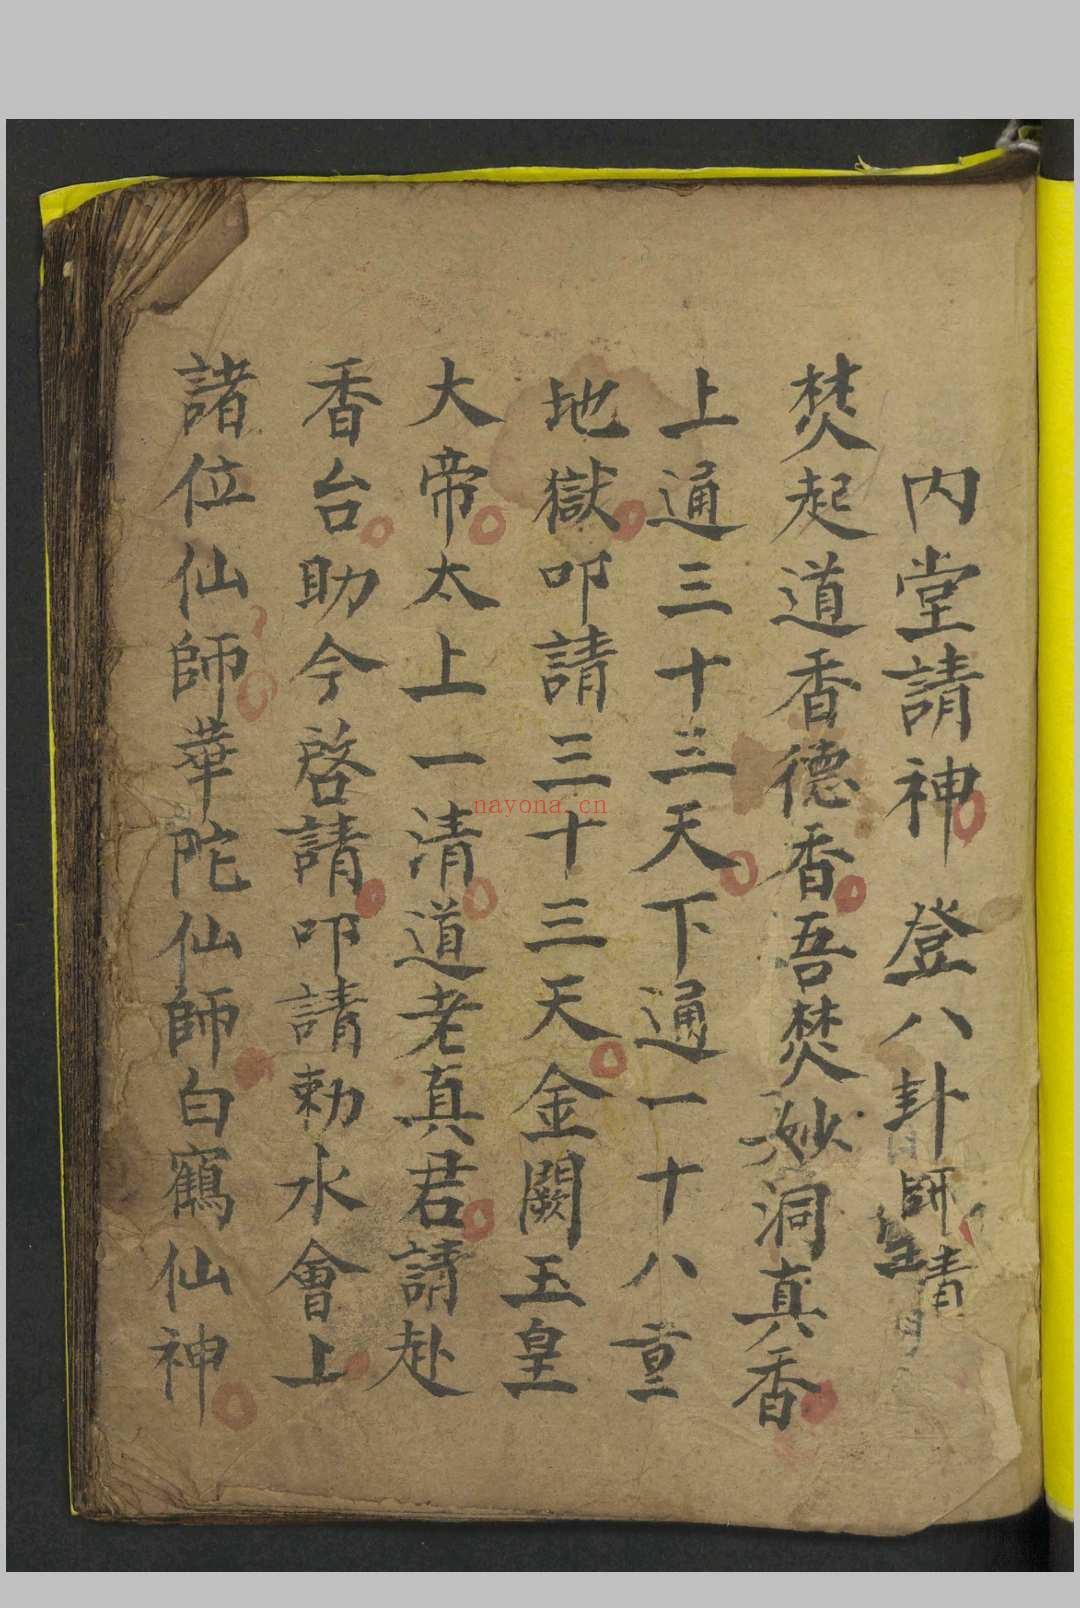 内堂請神 登八卦師請
焚起道香德香吾焚妙洞真香
上通三十三天下通一十八重
地獄叩請三十三天金闕玉皇
大帝太上一清道老真君請赴
香台助今啓請叩請勅水會上
諸位仙師華陀仙師白鶴仙神
nayona.cn